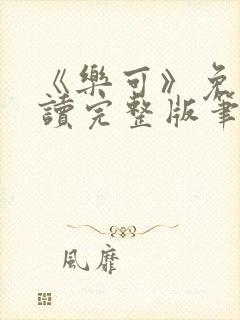 《樂可》免
讀完整版筆
風靡